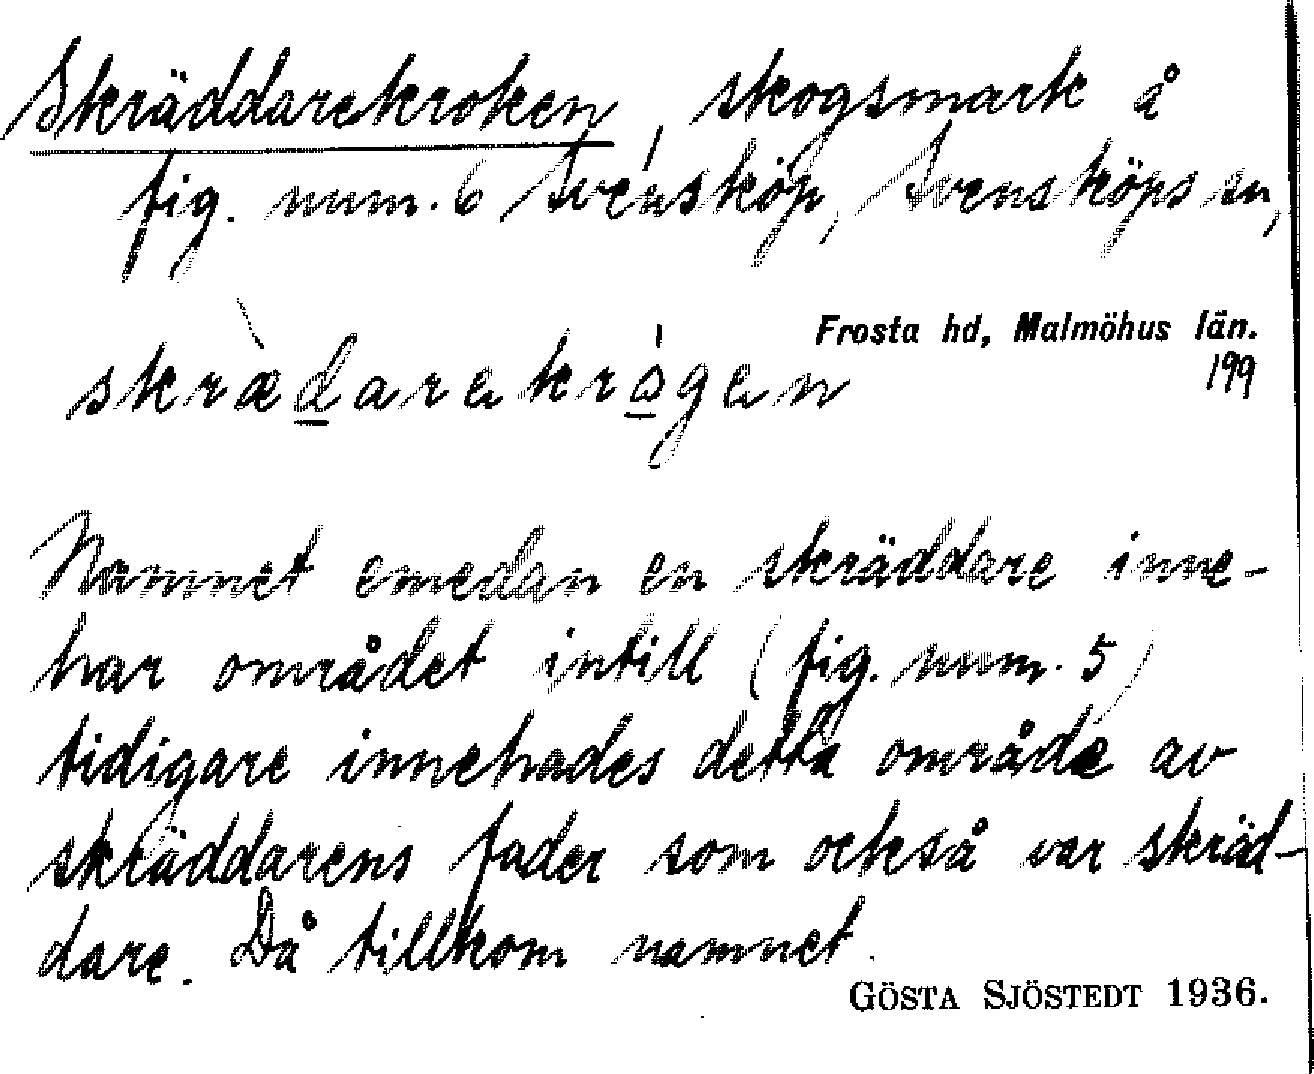 Skräddarekroken, skogsmark å
fig. num. 6 Svensköp, Svensköps sn,
Frosta hd, Malmöhus län.
skræ̀darekrågen
199
Namnet emedan en skräddare inne-
har området intill (fig. num. 5)
tidigare innehades detta område av
skräddarens fader som också var skräd-
dare. Då tillkom namnet.
GÖSTA SJÖSTEDT 1936.